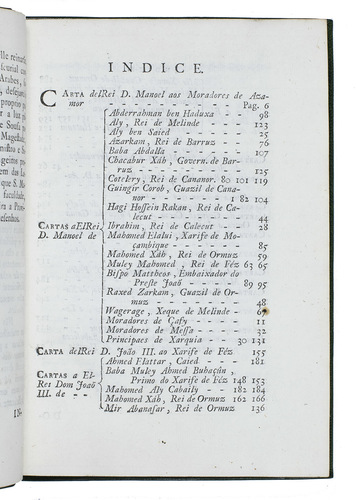 INDICE.
CARTA delRei D. Manoel aos Moradores de Aza-
mor - - - - - - - - - - Pag. 6
Abderrahman ben Haduxa - - 98
Aly, Rei de Melinde - - - - 123
Aly ben Saied - - - - - 25
Azarkam, Rei de Barruz - - 76
Baba Abdalla - - - - - 107
Chacabur Xáh, Govern. de Bar-
ruz - - - - - - - - 125
Cotelery, Rei de Cananor. 80 101 119
Guingir Corob, Guazil de Cana-
nor - - - - - - - 1 82 104
Hagi Hossein Rakan, Rei de Ca-
lecut - - - - - - - 44
CARTAS a ElRei
D. Manoel de
Ibrahim, Rei de Calecut - - 28
Mahomed Elalui, Xarife de Mo-
çambique - - - - - - 85
Mahomed Xáh, Rei de Ormuz 59
Muley Mahomed, Rei de Féz 63 65
Bispo Mattheos, Embaixador do
Preste Joaõ - - - - - 89 95
Raxed Zarkam, Guazil de Or-
muz - - - - - - - - 48
Wagerage, Xeque de Melinde - 67
Moradores de Çafy - - - - 11
Moradores de Messa - - - 32
Principaes de Xarquia - - 30 131
CARTA delRei D. Joaõ III. ao Xarife de Féz 155
CARTAS a El-
Rei Dom Joaõ
III. de - -
Ahmed Elattar, Caied - - - 181
Baba Muley Ahmed Buhaçũn,
Primo do Xarife de Féz 148 153
Mahomed Aly Cabaily - - 182 184
Mahomed Xáh, Rei de Ormuz 162 166
Mir Abanasar, Rei de Ormuz 136